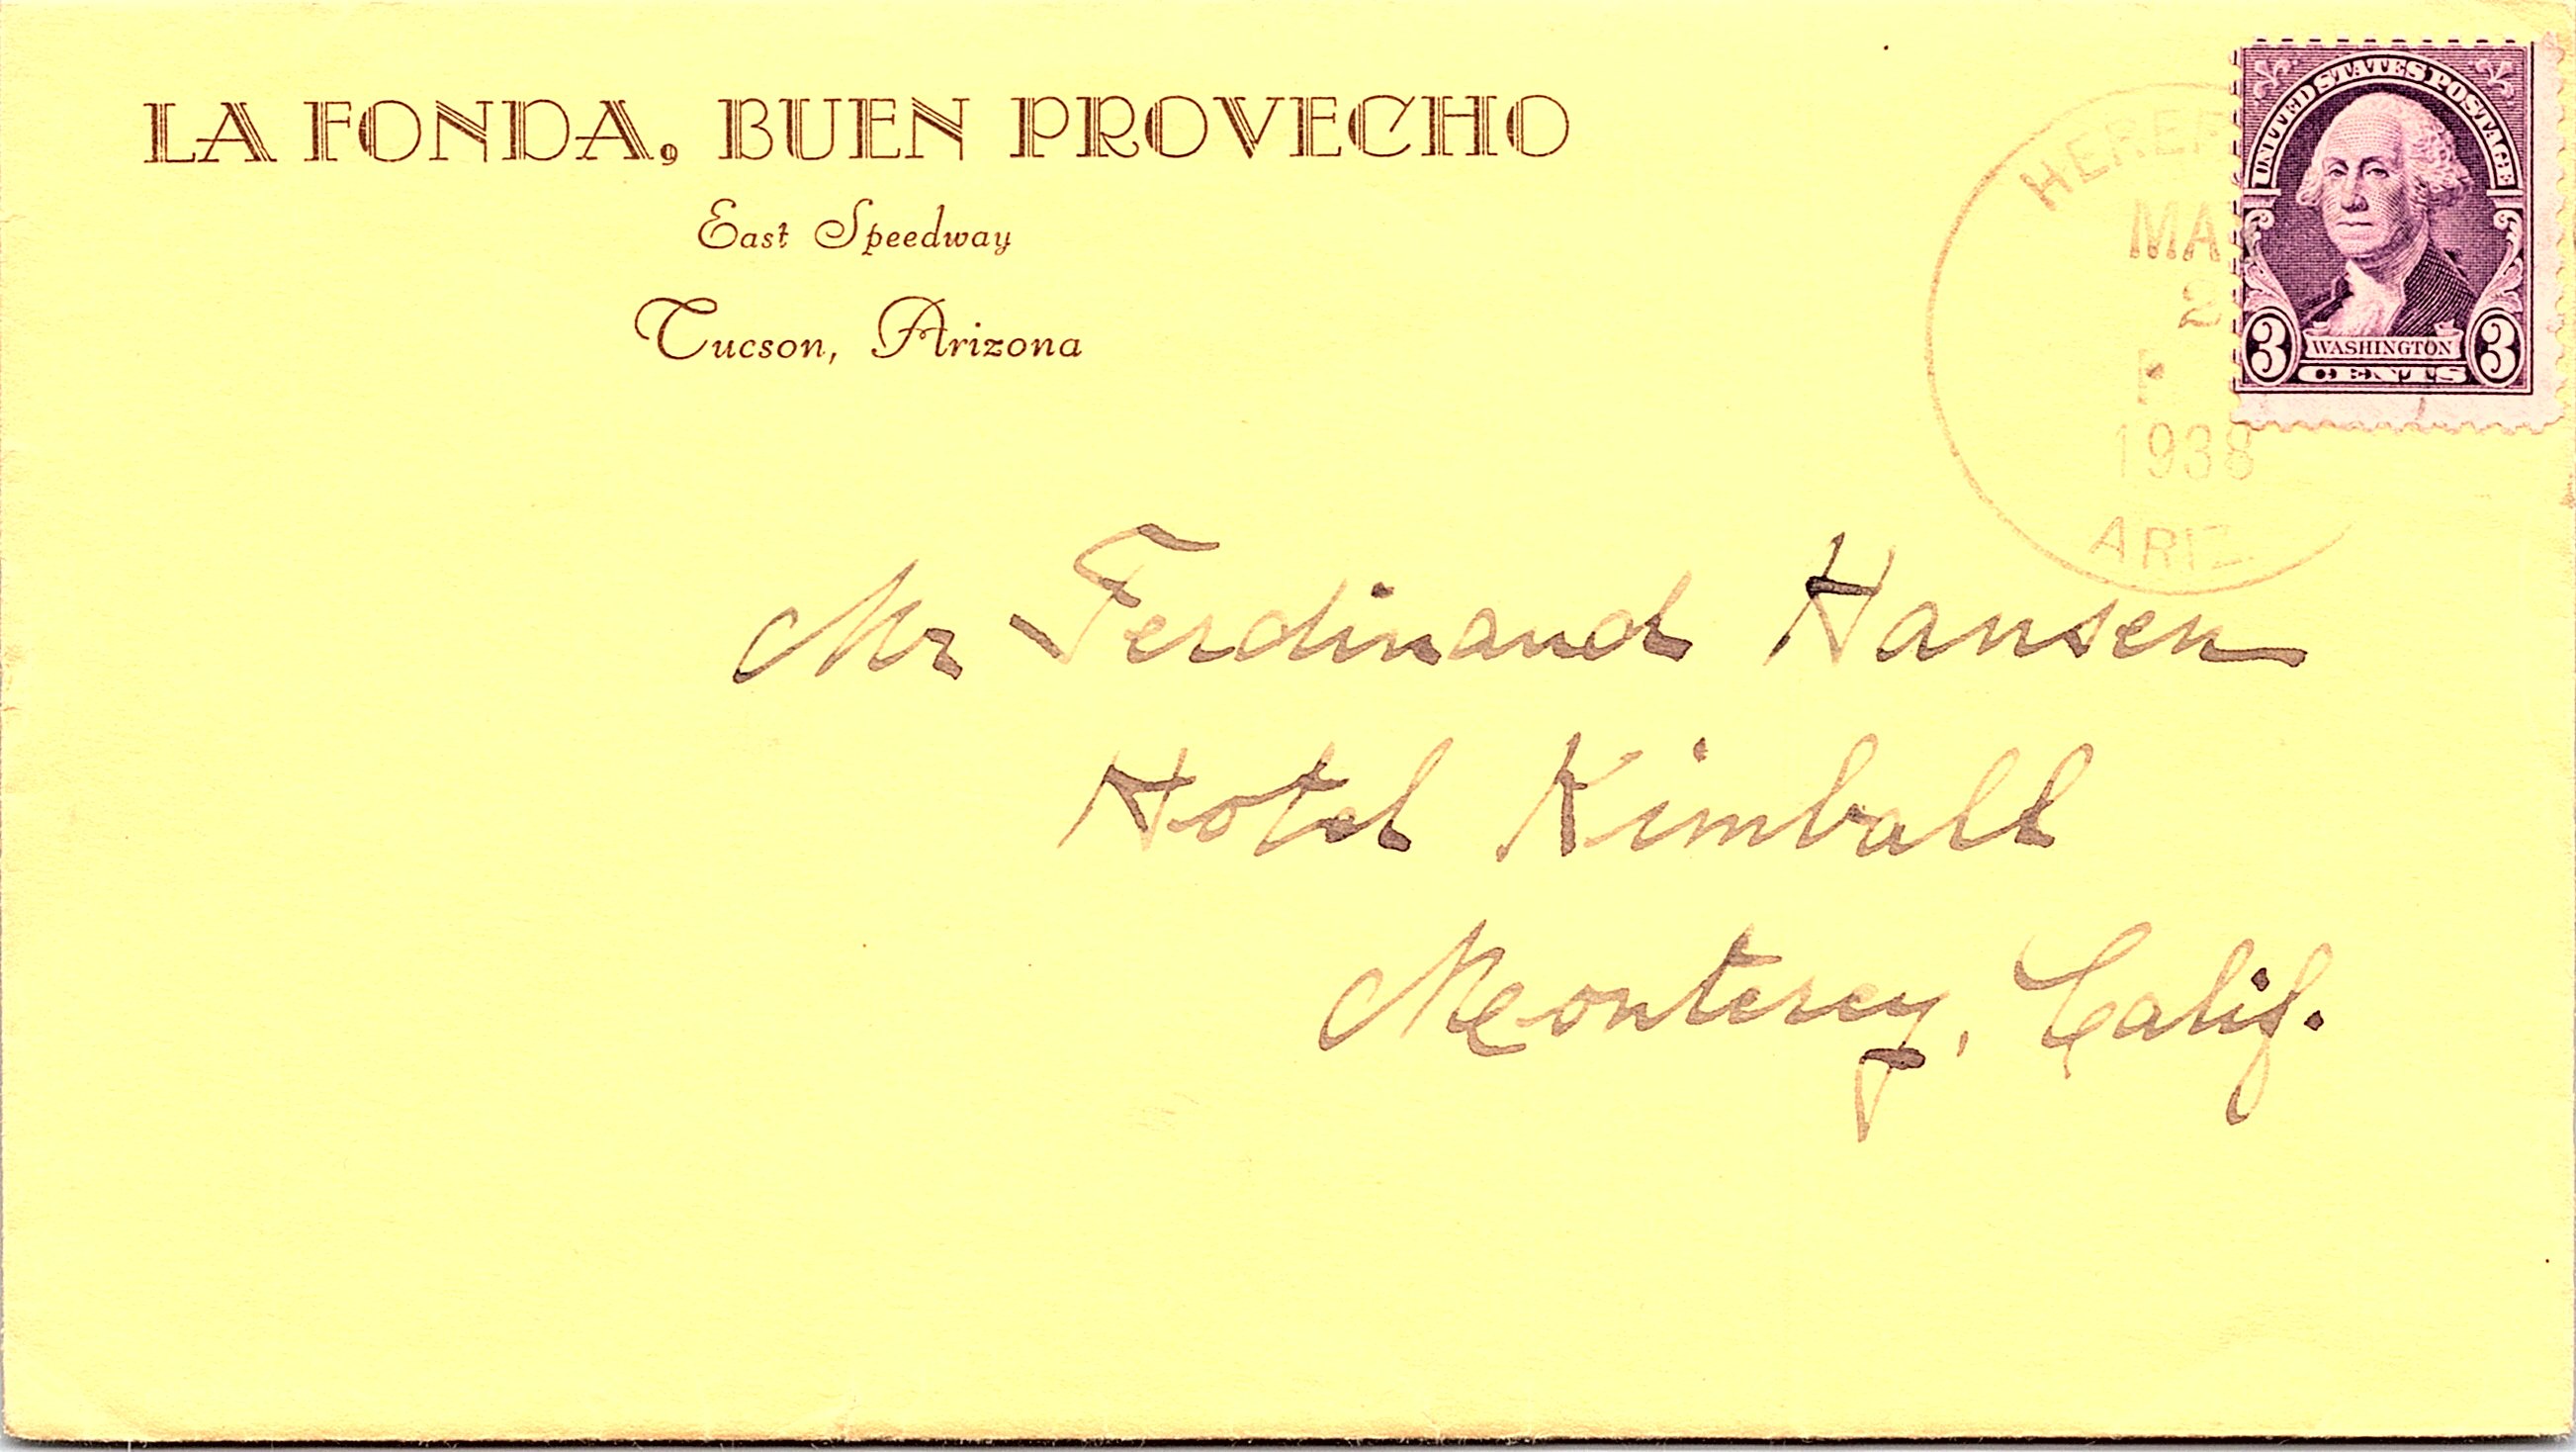 LA FONDA, BUEN PROVECHO
East Speedway
Tucson, Arizona
UNITED STATES POSTAGE
3 WASHINGTON 3
CENTS
1938
ARIZ
Mr Ferdinand Hansen
Hotel Kimball
Monterey, Calif.